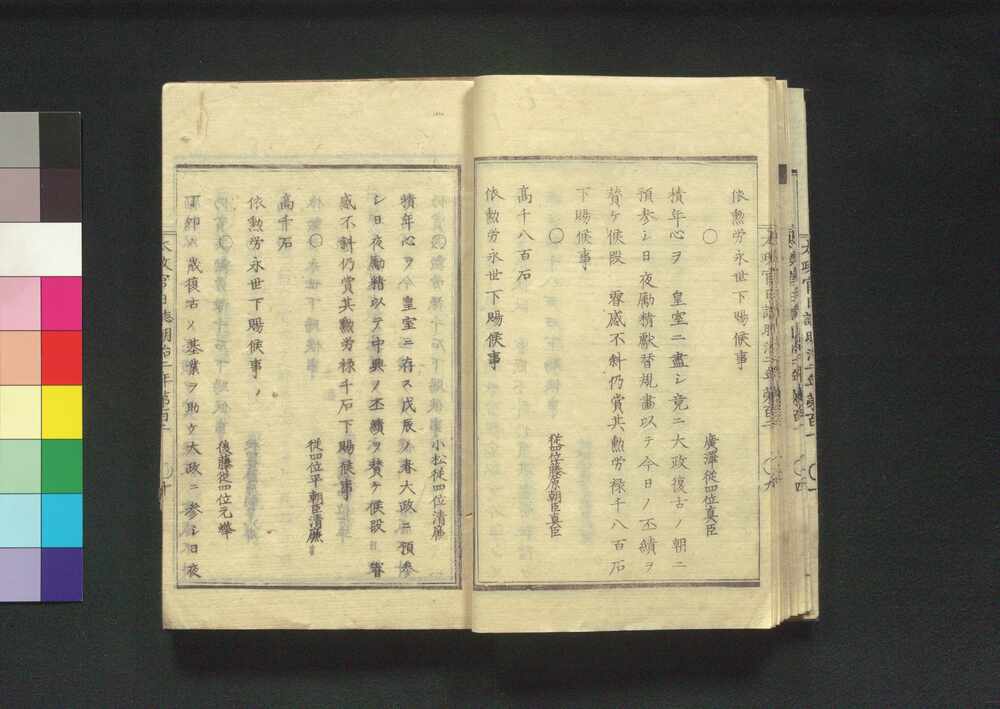 依勲労永世下賜候事
〇
廣澤従四位真臣
積年心ヲ 皇室ニ盡シ竟ニ大政復古ノ朝ニ
預参シ日夜励精獻替規畫以テ今日ノ丕績ヲ
賛ケ候段 叡感不斜仍賞其勲労禄千八百石
下賜候事
〇
従四位藤原朝臣真臣
高千八百石
依勲労永世下賜候事
〇
小松従四位清廉
積年心ヲ 皇室ニ存ス戊辰ノ春大政ニ預参
シ日夜励精以テ中興ノ丕績ヲ賛ケ候段 叡
感不斜仍賞其勲労禄千石下賜候事
〇
従四位平朝臣清廉
高千石
依勲労永世下賜候事
〇
後藤従四位元曄
丁卯ノ歳復古ノ基業ヲ助ケ大政ニ参シ日夜